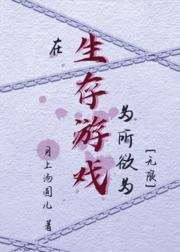 在
生存游戏
为所欲为
[无限]
月上汤圆儿 著